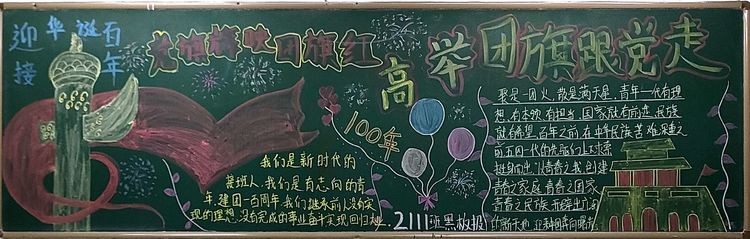 迎华诞百
接年
党旗辉映团旗红
高举团旗跟党走
100年
我们是新时代的
接班人,我们是有志向的青
年,建国一百周年,我们继承前人没有实
现的理想,没有完成的事业
2111班黑板报
聚是一团火,散是满天星,青年一代有理
想,有本领,有担当,国家就有前途,民族
就有希望,百年之前,在中华民族苦难深重之
前五四一代的先驱们上下求索
挺身而出,以青春之我,创建
青春之家庭,青春之国家
青春之民族